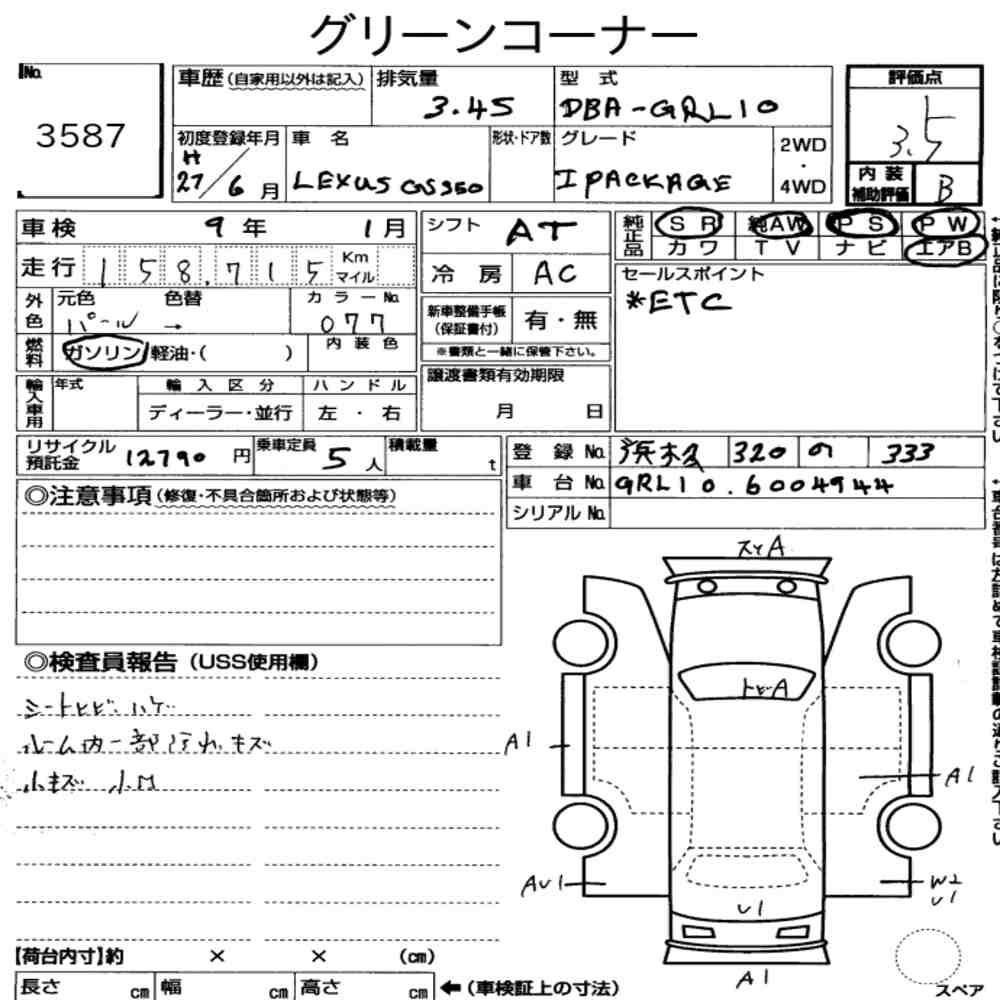 グリーンコーナー
No.
3587
車歴(自家用以外は記入)
排気量
3.45
型 式
DBA-GRL10
評価点
3.5
内装補助評価
B
初度登録年月
H
27/6月
車 名
LEXUS GS350
形状・ドア数
グレード
I PACKAGE
2WD
・
4WD
車検 9年 1月
シフト AT
純正品
SR 純AW PS PW
カワ TV ナビ エアB
走行 158,715 Km マイル
冷 房 AC
セールスポイント
*ETC
外色
元色 色替
パール →
カラーNo.
077
新車整備手帳(保証書付)
有・無
※書類と一緒に保管下さい。
燃料
ガソリン・軽油・( )
内 装 色
譲渡書類有効期限
月 日
輸入車用
年式
輸 入 区 分
ディーラー・並行
ハ ン ド ル
左 ・ 右
リサイクル預託金 12790 円
乗車定員 5 人
積載量 t
登 録 No. 浜松 320 の 333
車 台 No. GRL10.6004944
シリアル No.
◎注意事項(修復・不具合箇所および状態等)
◎検査員報告(USS使用欄)
シートヒビ、ハゲ
ルーム内一部汚れ キズ
小キズ 小凹
スレA
トビA
A1
A1
AU1
W2
U1
U1
A1
スペア
【荷台内寸】約 × × (cm)
長さ cm 幅 cm 高さ cm ←(車検証上の寸法)